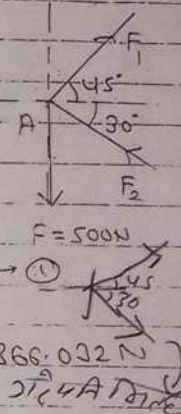 F₁
45°
A
30°
F₂
F = 500N
→ ① 45
30
866.032 N